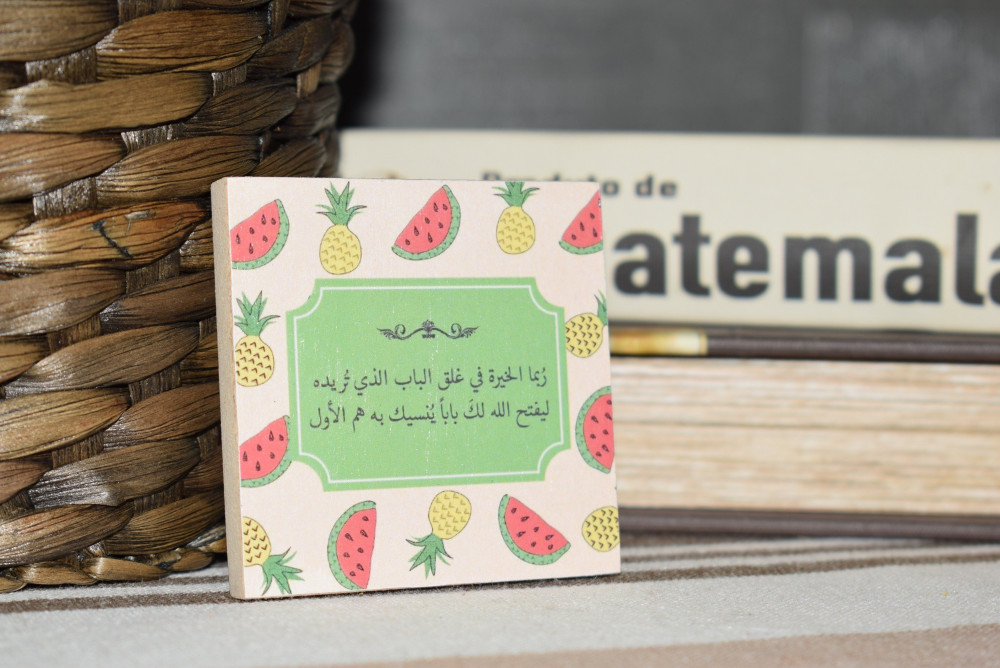 رُبما الخيرة في غلق الباب الذي تُريده
ليفتح الله لكَ باباً يُنسيك به هم الأول
de
atemala